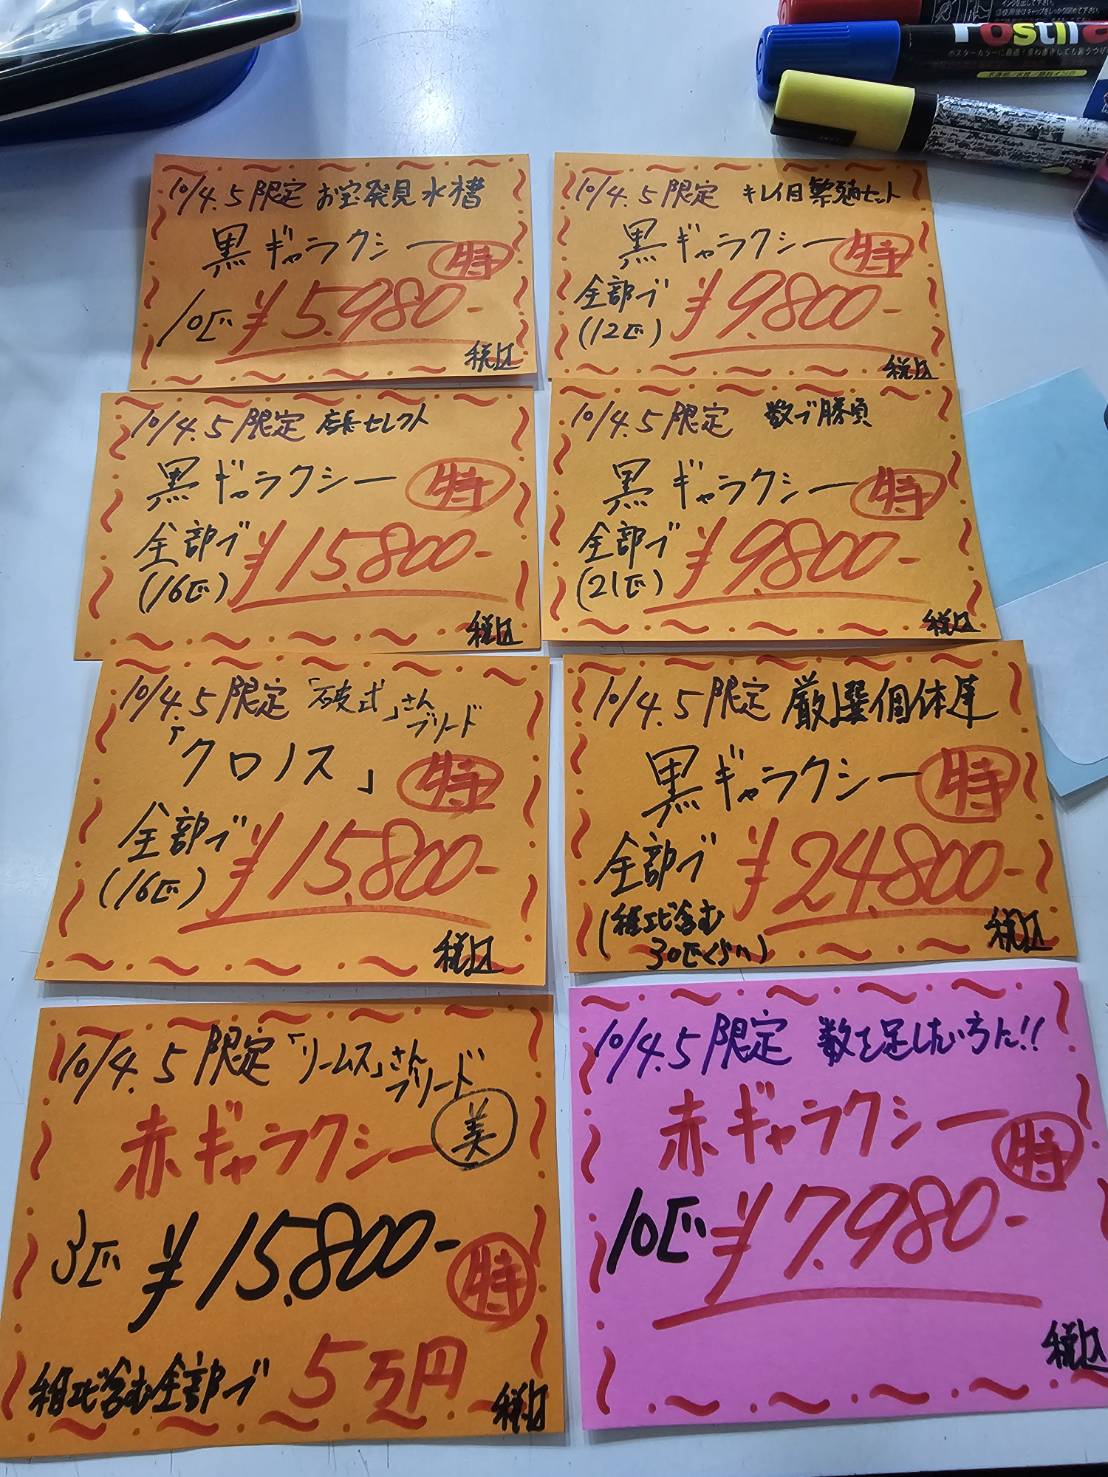 10/4.5限定 お宝発見水槽
黒ギャラクシー 特
10匹 ¥5.980-
税込
10/4.5限定 キレイ目繁殖セット
黒ギャラクシー 特
全部で ¥9.800-
(12匹)
税込
10/4.5限定 店長セレクト
黒ギャラクシー 特
全部で ¥15.800-
(16匹)
税込
10/4.5限定 数で勝負
黒ギャラクシー 特
全部で ¥9800-
(21匹)
税込
10/4.5限定 「破式」さん
ブリード
「クロノス」 特
全部で ¥15.800-
(16匹)
税込
10/4.5限定 厳選個体達
黒ギャラクシー 特
全部で ¥24.800-
(稚エビ含む
30匹くらい)
税込
10/4.5限定 「リームス」さん
ブリード
赤ギャラクシー 美
3匹 ¥15.800-
特
稚エビ含む全部で 5万円
税込
10/4.5限定 数を足したい方に!!
赤ギャラクシー 特
10匹 ¥7.980-
税込
Postira